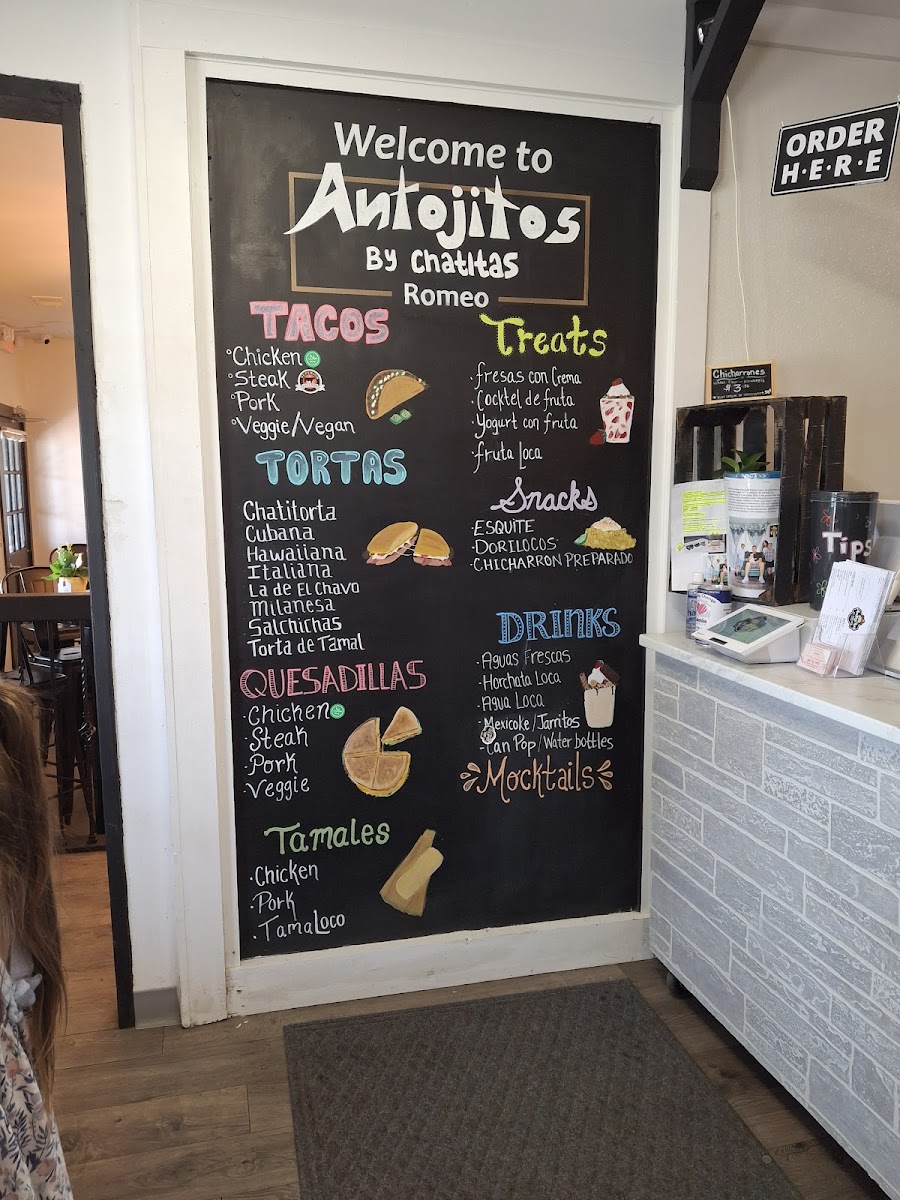 Welcome to
Antojitos
By Chatitas
Romeo
TACOS
Chicken
Steak
Pork
Veggie/Vegan
TORTAS
Chatitorta
Cubana
Hawaiiana
Italiana
La de El Chavo
Milanesa
Salchichas
Torta de Tamal
QUESADILLAS
Chicken
Steak
Pork
Veggie
Tamales
Chicken
Pork
TamaLoco
Treats
fresas con Crema
Cocktel de fruta
Yogurt con fruta
fruta Loca
Snacks
ESQUITE
DORILOCOS
CHICHARRON PREPARADO
DRINKS
Aguas Frescas
Horchata Loca
Agua Loca
Mexicoke/Jarritos
Can Pop/Water bottles
Mocktails
ORDER
H·E·R·E
Chicharrones
$3
Tips